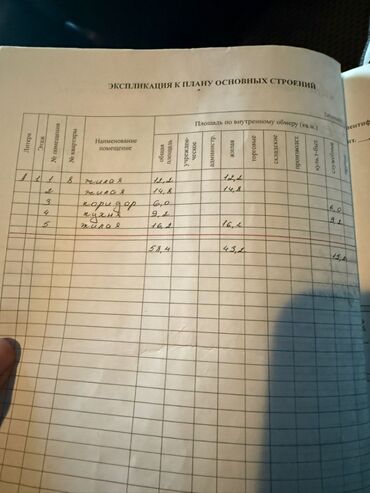 ЭКСПЛИКАЦИЯ К ПЛАНУ ОСНОВНЫХ СТРОЕНИЙ
Литера Этаж № помещения № квартиры Наименование помещение Площадь по внутреннему обмеру (кв.м.)
общая площадь учрежденческое администр. жилая торговые складские производст. культ-быт служебные
8 1 1 8 жилая 12,2 12,2
2 жилая 14,8 14,8
3 коридор 6,0 6,0
4 кухня 9,2 9,2
5 жилая 16,2 16,2
58,4 43,2 15,2